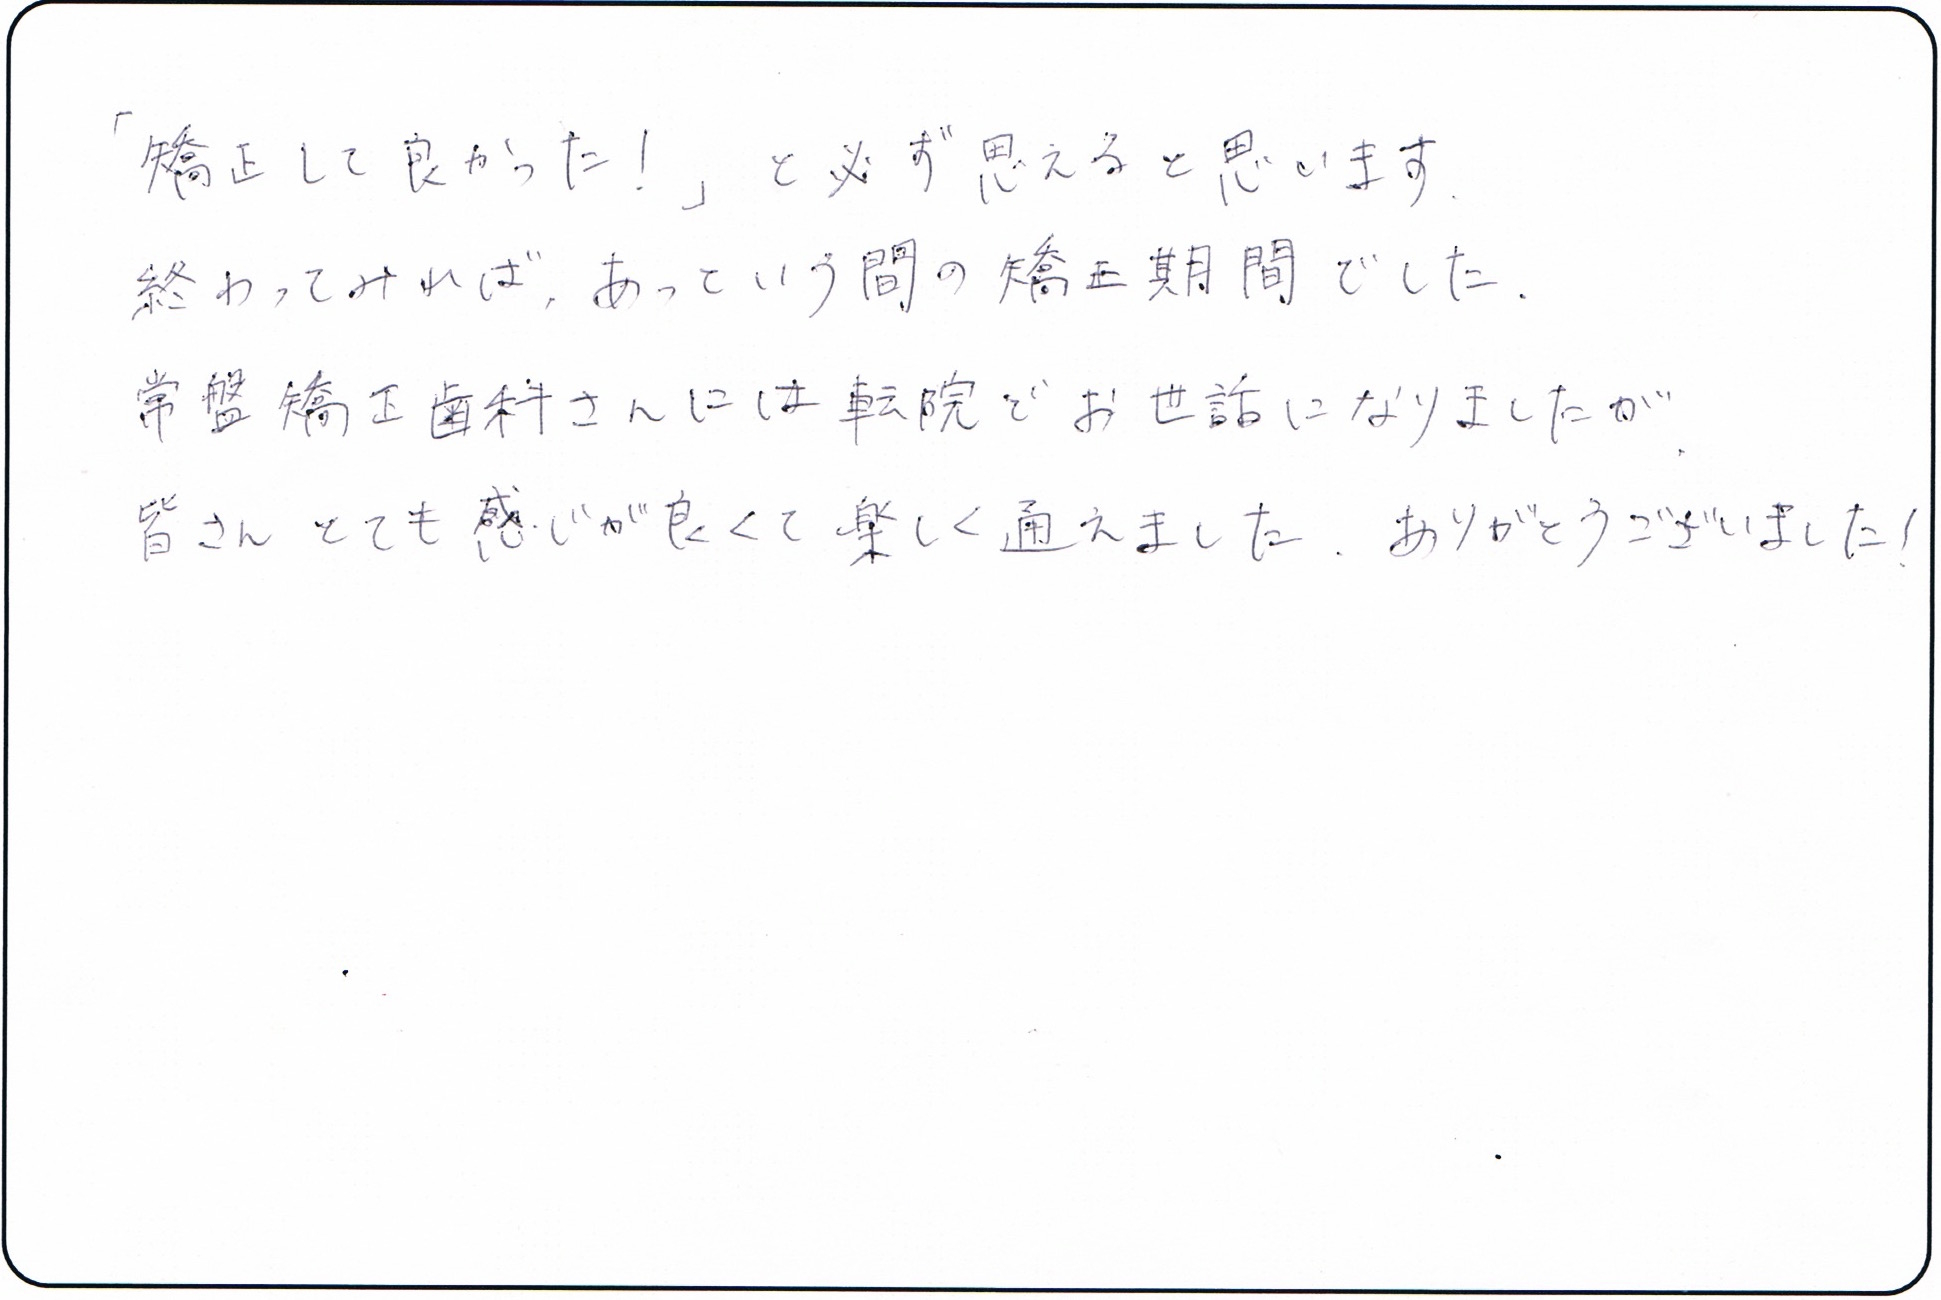 「矯正して良かった！」と必ず思えると思います.
終わってみれば、あっという間の矯正期間でした.
常盤矯正歯科さんには転院でお世話になりましたが、
皆さんとても感じが良くて楽しく通えました. ありがとうございました！